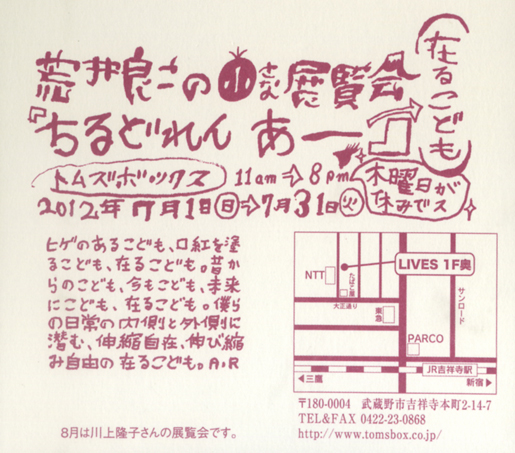 荒井良二の小さな展覧会
『ちるどれん あーっ』
(在るこども)
トムズボックス
11am⇨8pm
木曜日が
休みでス
2012年7月1日(日)⇨7月31日(火)
ヒゲのあるこども、口紅を塗
るこども、在るこども。昔か
らのこども、今もこども、未来
にこども、在るこども。僕ら
の日常の内側と外側に
潜む、伸縮自在、伸び縮
み自由の在るこども。A.R
8月は川上隆子さんの展覧会です。
LIVES 1F奥
NTT
たばこ屋
大正通り
東急
サンロード
PARCO
JR吉祥寺駅
◀三鷹
新宿▶
〒180-0004 武蔵野市吉祥寺本町2-14-7
TEL&FAX 0422-23-0868
http://www.tomsbox.co.jp/